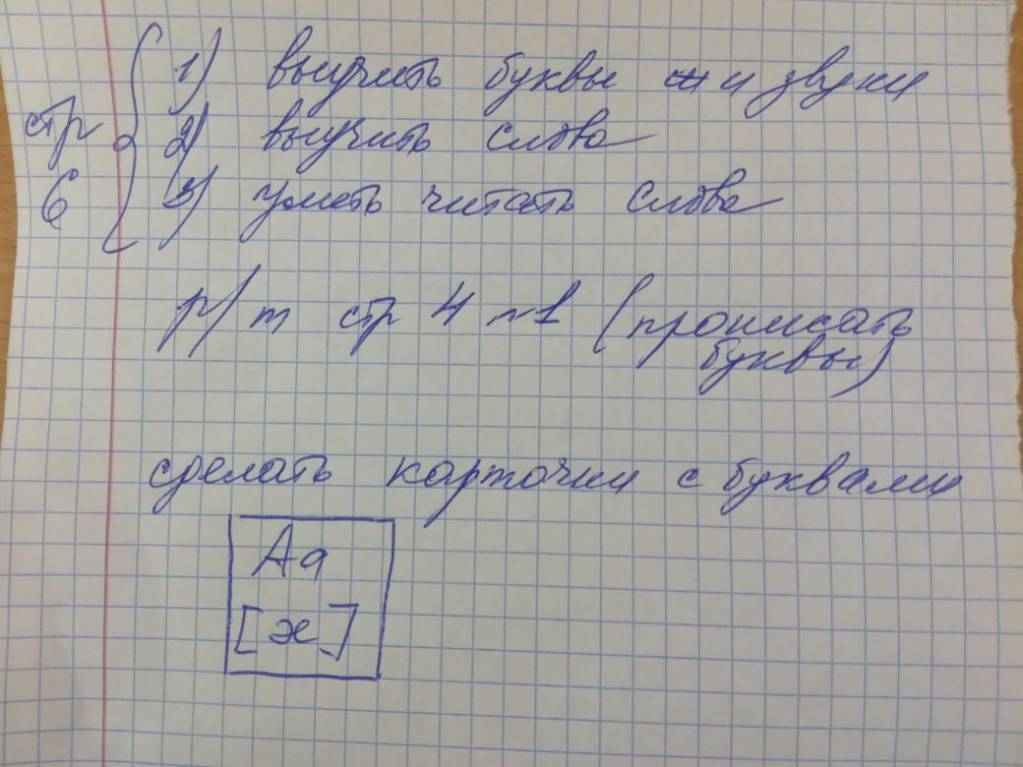 стр 6
1) выучить буквы и звуки
2) выучить слова
3) уметь читать слова
р/т стр 4 №1 (прописать
буквы)
сделать карточки с буквами
Aa
[æ]